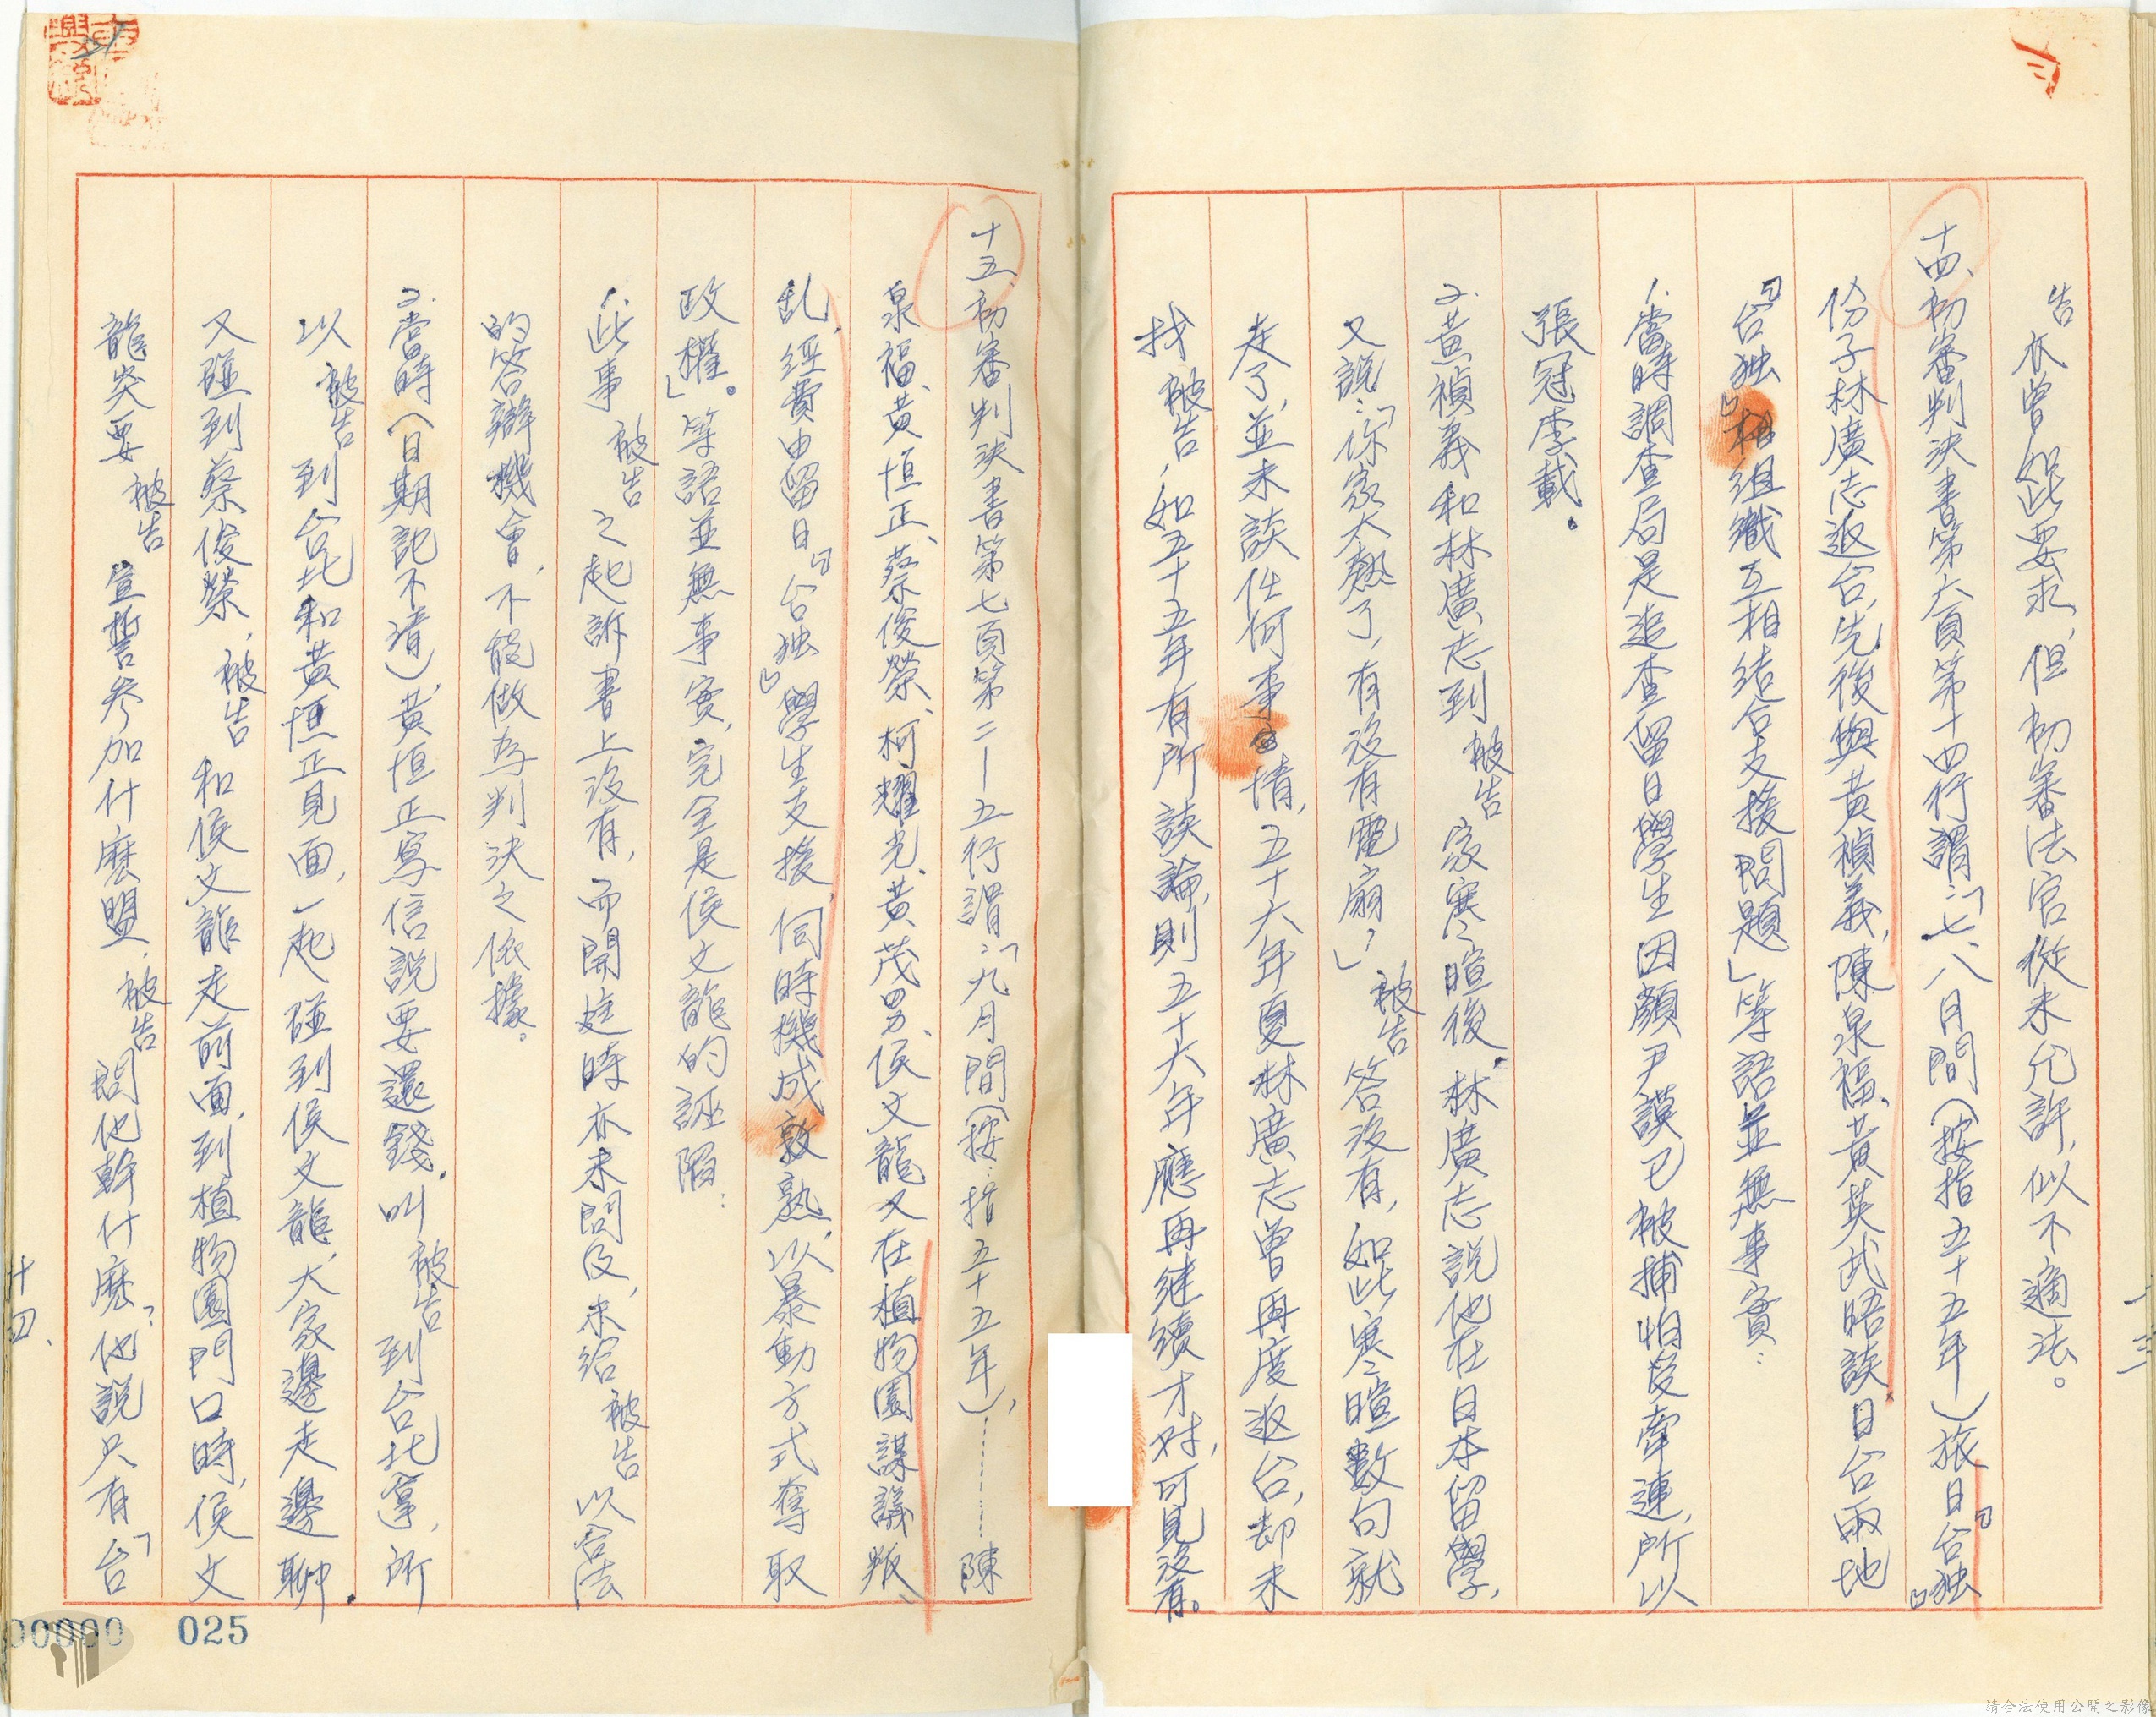 告亦曾如此要求，但初審法官從未允許，似不適法。
十四、初審判決書第六頁第十四行謂：「七、八日間（按指五十五年）旅日『台独』
份子林廣志返台，先後與黃禎義，陳泉福、黃英武晤談日台兩地
『台独』組織互相結合支援問題」等語並無事實：
1.當時調查局是追查留日學生因顏尹謨已被捕怕受牽連，所以
張冠李戴。
2.黃禎義和林廣志到被告家寒暄後，林廣志說他在日本留學，
又說：「你家太熱了，有沒有電扇？」被告答沒有，如此寒暄數句就
走了，並未談任何事情，五十六年夏林廣志曾再度返台，却未
找被告，如五十五年有所談論，則五十六年應再継續才对，可見沒有。
十三
十五、初審判決書第七頁第二－五行謂：「九月間（按：指五十五年），………陳
泉福、黃恒正、蔡俊榮、柯耀光、黃茂男、侯文龍又在植物園謀議叛
乱，經費由留日『台独』學生支援，伺時機成熟，以暴動方式奪取
政權。」等語並無事實，完全是侯文龍的誣陷：
1.此事被告之起訴書上沒有，而開庭時亦未問及，未給被告以合法
的答辯機會，不能做為判決之依據。
2.當時（日期記不清）黃恒正寫信說要還錢，叫被告到台北拿，所
以被告到台北和黃恒正見面，一起碰到侯文龍，大家邊走邊聊，
又碰到蔡俊榮，被告和侯文龍走前面，到植物園門口時，侯文
龍突要被告宣誓參加什麼盟，被告問他幹什麼？他說只有「台
十四、
00000 025
請合法使用公開之影像